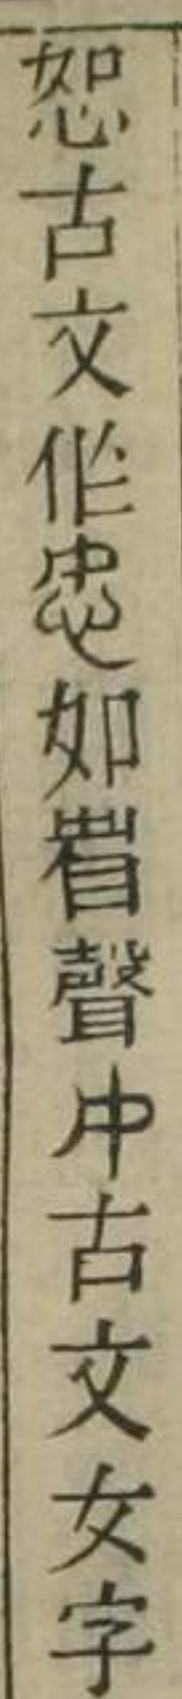 恕古文作㣽如眢聲㚢古文女字